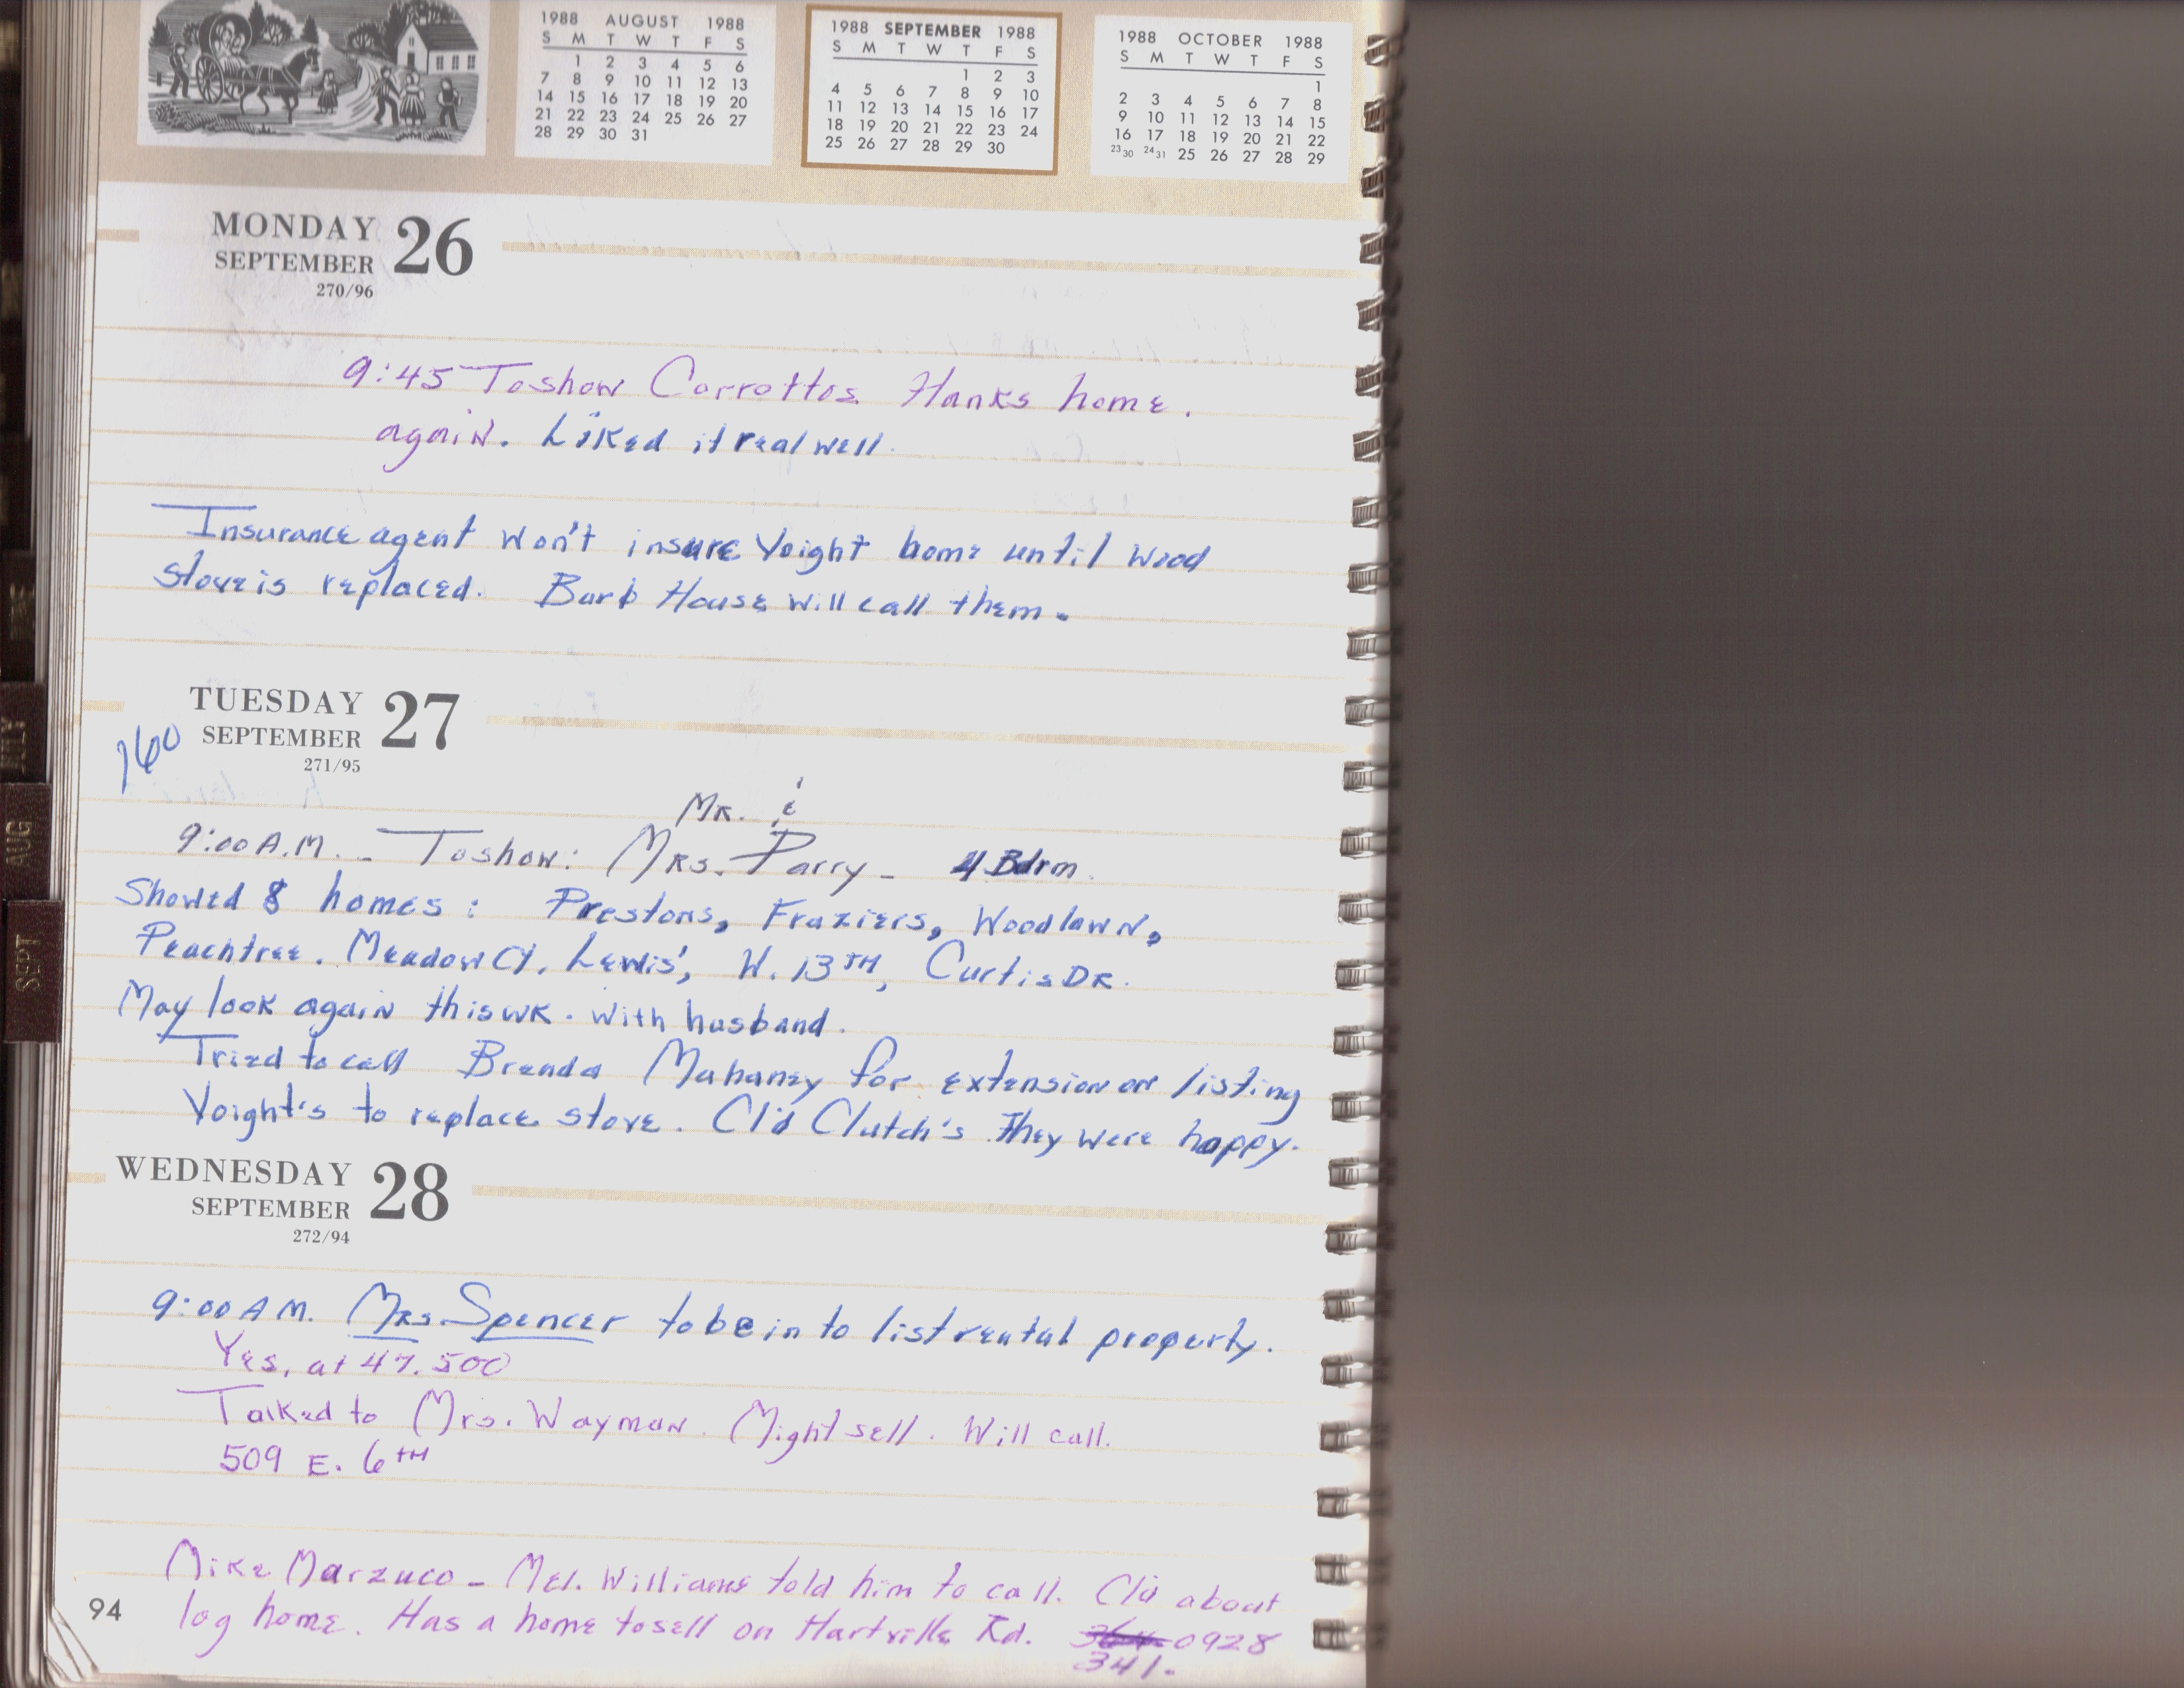 1988 AUGUST 1988
S M T W T F S
1 2 3 4 5 6
7 8 9 10 11 12 13
14 15 16 17 18 19 20
21 22 23 24 25 26 27
28 29 30 31
1988 SEPTEMBER 1988
S M T W T F S
1 2 3
4 5 6 7 8 9 10
11 12 13 14 15 16 17
18 19 20 21 22 23 24
25 26 27 28 29 30
1988 OCTOBER 1988
S M T W T F S
1
2 3 4 5 6 7 8
9 10 11 12 13 14 15
16 17 18 19 20 21 22
23 30 24 31 25 26 27 28 29
MONDAY 26
SEPTEMBER
270/96
9:45 To show Carrottos Hanks home.
again. Liked it real well.
Insurance agent won't insure Voight home until wood
stove is replaced. Barb House will call them.
TUESDAY 27
SEPTEMBER
271/95
160
Mr. &
9:00 A.M. - To show: Mrs. Parry - 4 Bdrm.
Showed 8 homes: Prestons, Fraziers, Woodlawn,
Peachtree. Meadow Ct. Lewis', W. 13TH, Curtis DR.
May look again this wk. with husband.
Tried to call Brenda Mahaney for extension on listing
Voight's to replace stove. Cl'd Clutch's They were happy.
WEDNESDAY 28
SEPTEMBER
272/94
9:00 A.M. Mrs. Spencer to be in to list rental property.
Yes, at 47.500
Talked to Mrs. Wayman. Might sell. Will call.
509 E. 6TH
Mike Marzuco - Mel. Williams told him to call. Cl'd about
log home. Has a home to sell on Hartville Rd. 364-0928
341-
94
JULY
AUG
SEPT